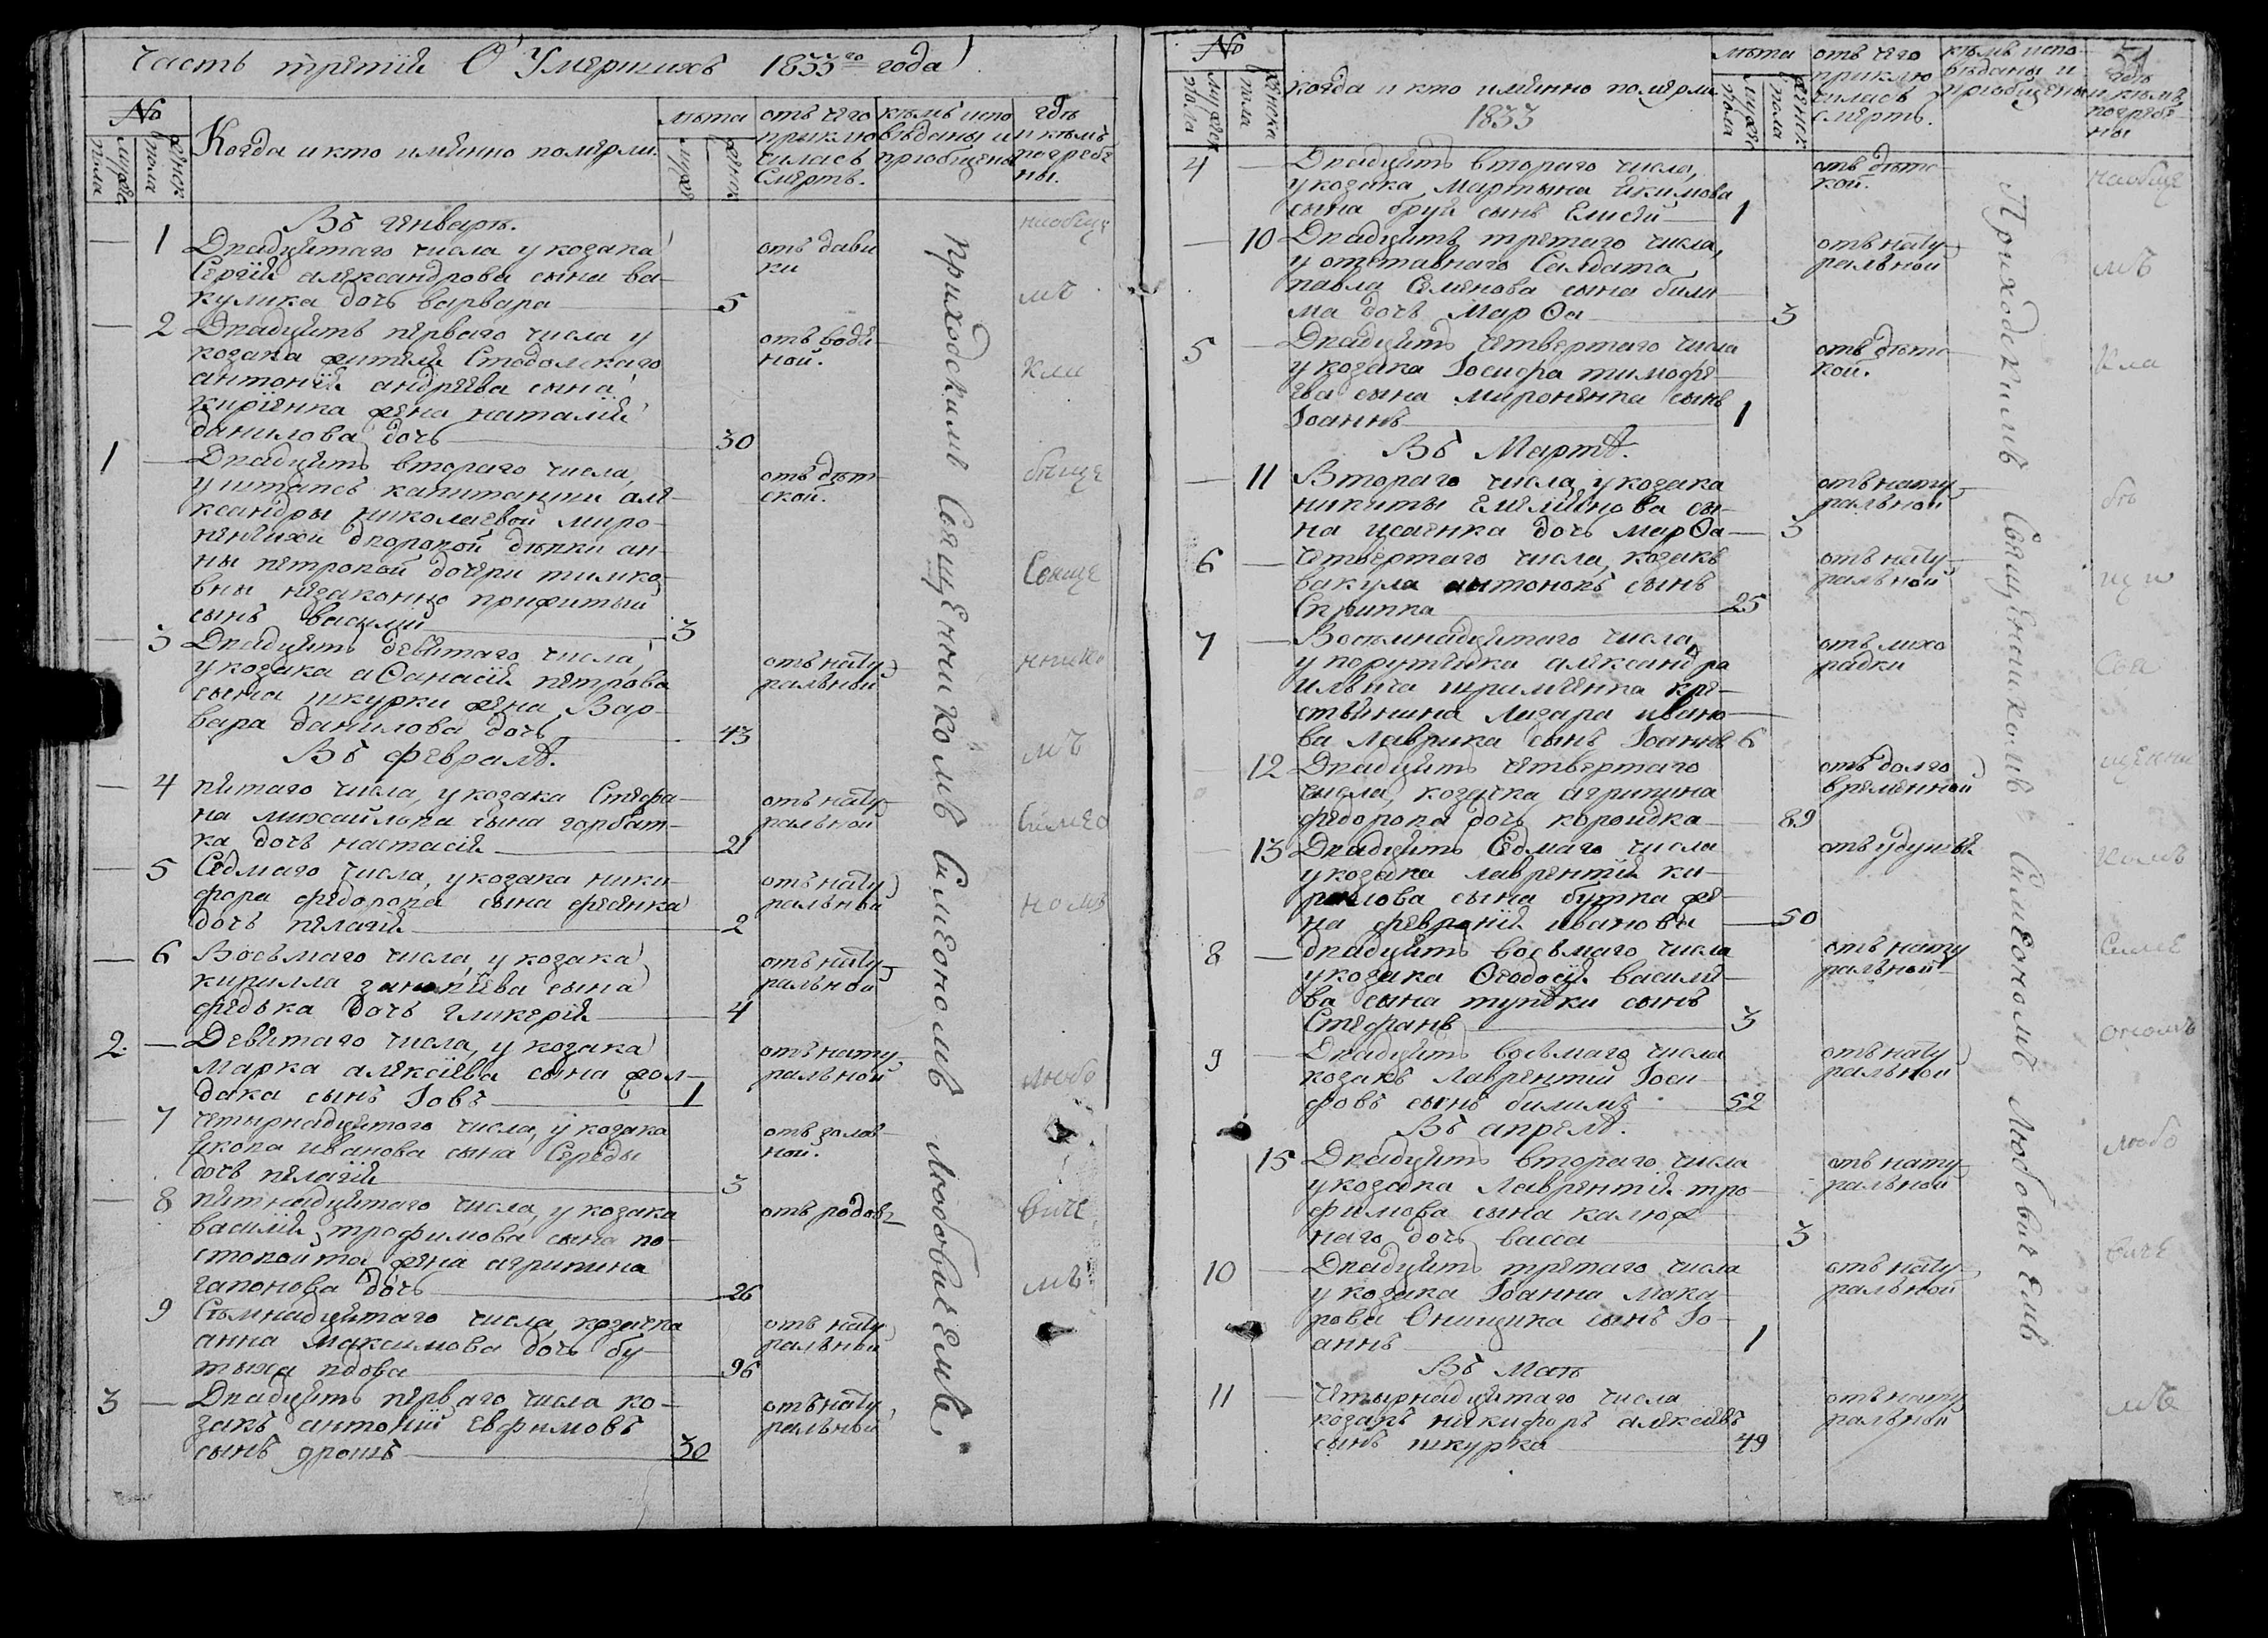 Часть третія О Умершихъ 1833го года
№
мужес. пола
женск. пола
Когда и кто именно померли.
лѣта
муже
женск
отъ чего приклю
чилась
Смерть.
кѣмъ испо
вѣданы и
приобщены
гдѣ
и кѣмъ
погребе
ны.
Въ генварѣ.
1 Двадцятаго числа у козака
Сергія александрова сына ва-
кулика дочь варвара 5
отъ дави
ки
2 Двадцять перваго числа у
козака жителя Стодолскаго
антонія андрѣева сына
кирїенка жена наталія
данилова дочь 30
отъ водя
ной.
1 Двадцять втораго числа,
у штапсъ капитанши але-
ксандры николаевой миро-
ненчихи дворовой дѣвки ан-
ны петровой дочери тимко
вны незаконно прижитый
сынъ василій 3
отъ дѣт
ской.
3 Двадцять девятаго числа,
у козака аѲанасія петрова
сына шкурки жена Вар-
вара данилова дочь 43
отъ нату
ральной
Въ февралѣ.
4 пятаго числа, у козака Стефа-
на михайлова сына горбат-
ка дочь настасія 21
отъ нату
ральной
5 Седмаго числа, у козака ники-
фора федорова сына фесенка
дочь пелагія 2
отъ нату
ральной
6 Восьмаго числа, у козака
кирилла сына
федька дочь гликерія 4
отъ нату
ральной
2. Девятаго числа, у козака
Марка алексѣева сына жол-
дака сынъ Іовъ 1
отъ нату
ральной
7 четырнадцятого числа, у козака
якова иванова сына Середы
дочь пелагія 3
отъ голов
ной.
8 пятнадцятаго числа, у козака
василія трофимова сына по-
стовойта жена агрипина
гапонова дочь 26
отъ родов
9 Семнадцятаго числа, козачка
анна Максимова дочь бу-
тыха вдова 96
отъ нату
ральной
3 Двадцять перваго числа ко-
закъ антоній Евфимовъ
сынъ 30
отъ нату
ральной
приходскимъ Священникомъ Симеономъ Любовичемъ
наобще
мъ
кла
бище
Свяще
ннико
мъ
Симео
номъ
любо
виче
мъ
51
№
мужеск пола
женска пола
когда и кто именно померли
1833
лѣта
мужес пола
женск. пола
отъ чего
приклю
чилась
смерть.
кѣмъ испо-
вѣданы и
приобщены
гдѣ
и кѣмъ
погребе-
ны
4 Двадцять втораго числа,
у козака Мартына якимова
сына бруя сынъ Елисей 1
отъ дѣтс
кой.
10 Двадцять третаго числа,
у отставнаго Салдата
павла Семенова сына били-
ма дочь МарѲа 3
отъ нату
ральной
5 Двадцять четвертаго числа
у козака Іосифа тимофе-
ева сына мироненка сынъ
Іоаннъ 1
отъ дѣтс
кой.
Въ Мартѣ.
11 Втораго числа, у козака
никиты Емелянова сы-
на исаенка дочь МарѲа 3
отъ нату
ральной
6 четвертаго числа, козакъ
вакула антоновъ сынъ
Скрипка 25
отъ нату
ральной
7 Восемнадцятаго числа,
у порутчика александра
ильича шрамченка кре-
стянина Лазара ивано-
ва лаврика сынъ Іоаннъ 6
отъ лихо
радки
12 Двадцять четвертаго
числа, козачка агрипина
федорова дочь 89
отъ долго
временной
13 Двадцять Седмаго числа
у козака лаврентія ки-
рилова сына бутка же-
на февронія иванова 50
отъ удушья
8 Двадцять восьмаго числа
у козака Ѳеодосія василе-
ва сына сынъ
Стефанъ 3
отъ нату
ральной
9 Двадцять восьмаго числа
козакъ Лаврентій Іоси
фовъ сынъ билимъ 52
отъ нату
ральной
Въ апрелѣ.
15 Двадцять втораго числа
у козака Лаврентія тро-
фимова сына калюж-
наго дочь васса 3
отъ нату
ральной
10 Двадцять третаго числа
у козака Іоанна мака-
рова Онищика сынъ Іо-
аннъ 1
отъ нату
ральной
Въ Маѣ
11 четырнадцятаго числа
козакъ никифоръ алексѣевъ
сынъ шкурка 49
отъ нату
ральной
Приходскимъ Священникомъ Симеономъ Любовичемъ
наобще
мъ
кла
би
щи
Свя
щенни
комъ
Симе
ономъ
любо
виче
мъ